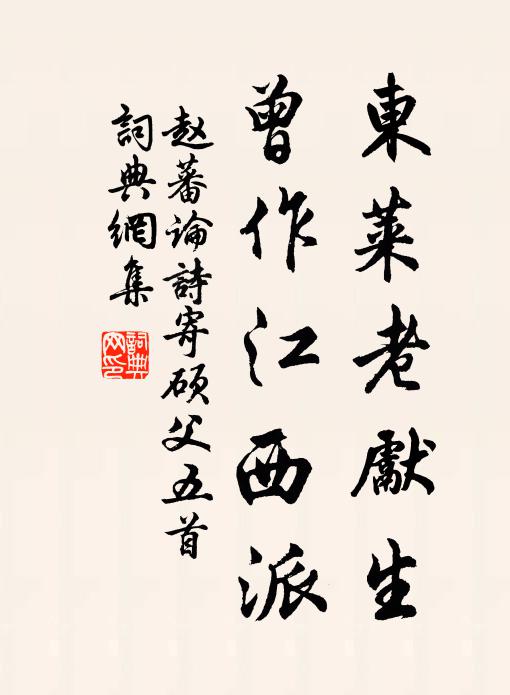 東萊老獻生
曾作江西派
赵蕃論詩寄硕父五首
詞典網集
詞典
网印